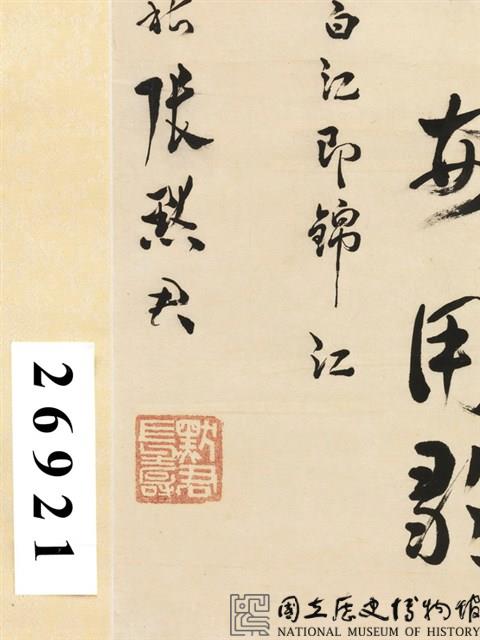 用
白江即錦江
張默君
默君長壽
26921
國立歷史博物館
NATIONAL MUSEUM OF HISTORY